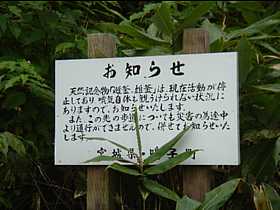 お知らせ
天然記念物「雌釜、雄釜」は、現在活動が停
止しており噴気自体も観うけられない状況に
ありますので、お知らせいたします。
また、この先の歩道についても災害の為途中
より通行ができませんので、併せてお知らせいた
します。
宮城県 鳴子町